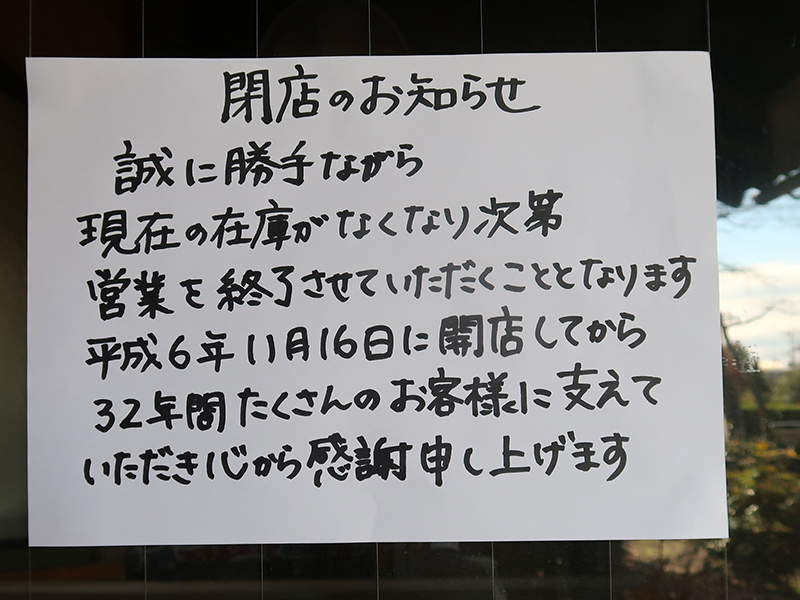 閉店のお知らせ
誠に勝手ながら
現在の在庫がなくなり次第
営業を終了させていただくこととなります
平成6年11月16日に開店してから
32年間たくさんのお客様に支えて
いただき心から感謝申し上げます